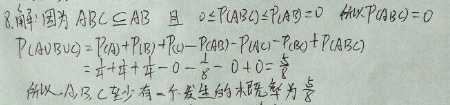 8.解:因为 ABC⊆AB 且 0≤P(ABC)≤P(AB)=0 所以P(ABC)=0
P(AUBUC)=P(A)+P(B)+P(C)-P(AB)-P(AC)-P(BC)+P(ABC)
=1/4+1/4+1/4-0-1/8-0+0=5/8
所以A,B,C至少有一个发生的概率为5/8